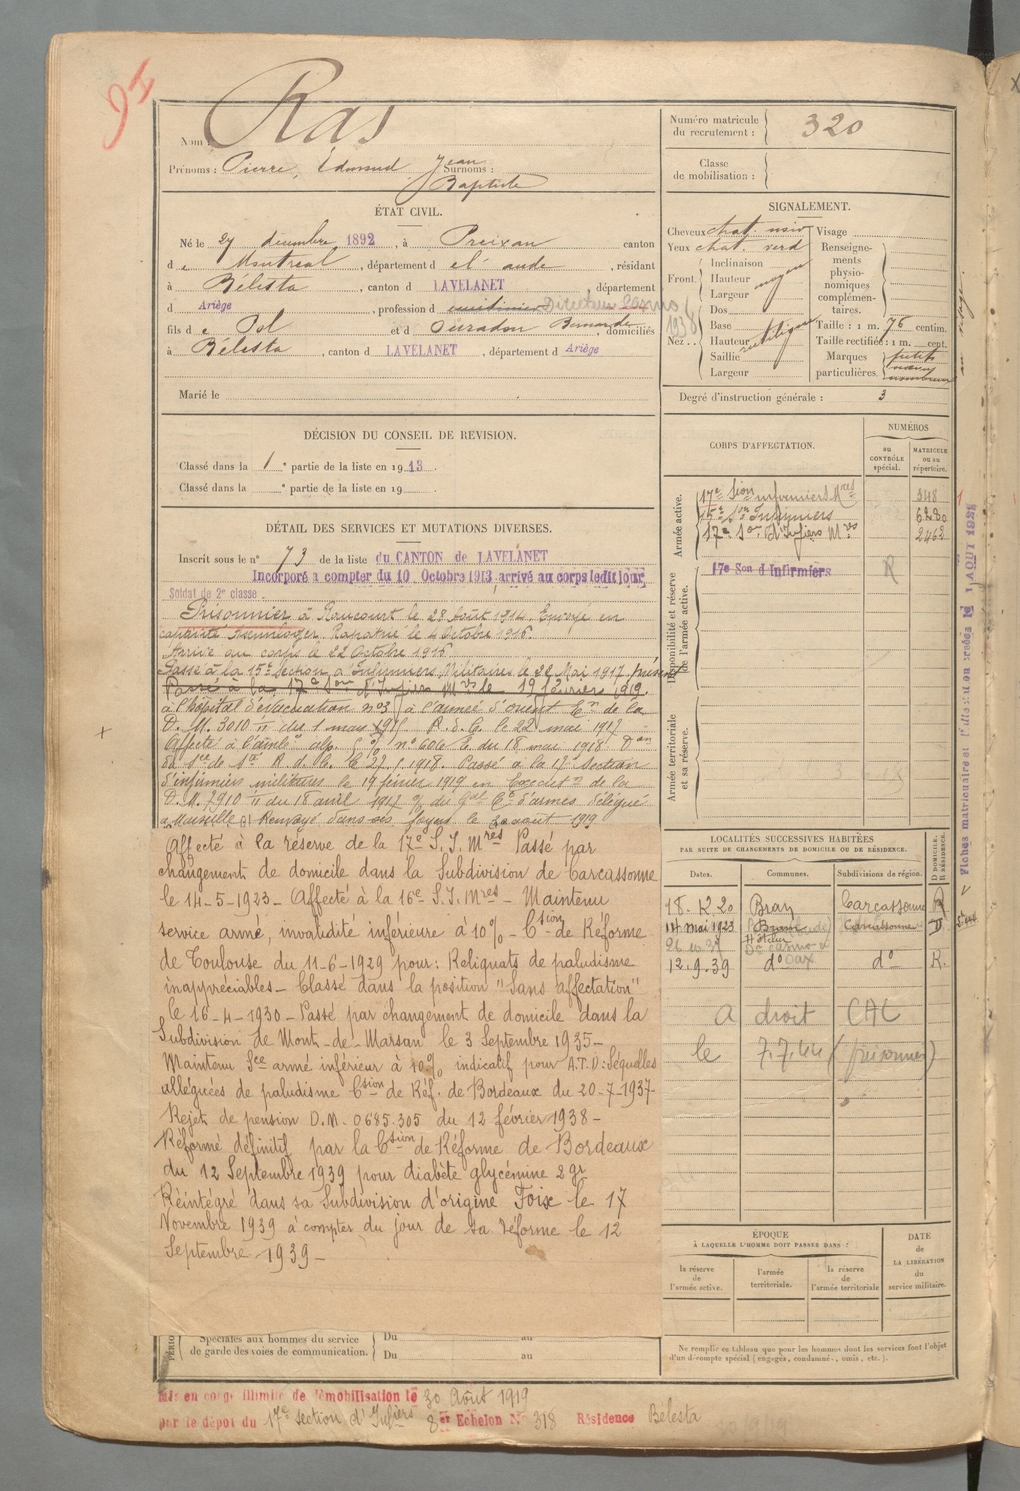 91
Nom : Ras
Prénoms : Pierre, Edmond Jean Surnoms :
Baptiste
ÉTAT CIVIL.
Né le 27 décembre 1892, à Preixan canton
de Montreal, département d el' aude, résidant
à Bélesta, canton d LAVELANET département
d Ariège, profession d cuisinier Directeur Casino
1938
fils de Pol et d Ouradou Bernarde, domiciliés
à Bélesta, canton d LAVELANET, département d Ariège
Marié le
DÉCISION DU CONSEIL DE REVISION.
Classé dans la 1e partie de la liste en 1913.
Classé dans la e partie de la liste en 19
DÉTAIL DES SERVICES ET MUTATIONS DIVERSES.
Inscrit sous le n° 73 de la liste du CANTON de LAVELANET
Incorporé a compter du 10 Octobre 1913 arrivé au corps ledit jour
Soldat de 2e classe
Prisonnier à Raucourt le 28 Août 1914. Envoyé en
captivité Rapatrié le 4 Octobre 1916.
Arrivé au corps le 22 Octobre 1916
Passé à la 15e section d'Infirmiers Militaires le 22 Mai 1917 présent
Passé à la 17e Son d'Infiers Mres le 19 février 1919.
à l'hôpital d'évacuation n°3 à l'armée d'orient En de la
D. M. 3010 du 1 mars 1917 R. d. C. le 22 mai 1917
Affecté à l'ambce alp. n° 606 E. du 18 mai 1918 Don
du sce de Sté R. d. C. le 27.1.1918. Passé à la 17e Section
d'infirmiers militaires le 19 février 1919 en Execution de la
D. M. 7910 du 18 avril 1917 du Gal Ct d'armes délégué
a Marseille Renvoyé dans ses foyers le 30 août 1919
Affecté à la réserve de la 17e S. I. Mres Passé par
changement de domicile dans la Subdivision de Carcassonne
le 14-5-1923 - Affecté à la 16e S. I. Mres - Maintenu
service armé, invalidité inférieure à 10% - Csion de Réforme
de Toulouse du 11-6-1929 pour : Reliquats de paludisme
inappréciables - Classé dans la position "Sans affectation"
le 16-4-1930 - Passé par changement de domicile dans la
Subdivision de Mont-de-Marsan le 3 Septembre 1935 -
Maintenu Sce armé inférieur à 10% indicatif pour A.T.D : Séquelles
alléguées de paludisme Csion de Réf. de Bordeaux du 20-7-1937-
Rejet de pension D.M. 0685.305 du 12 février 1938 -
Réformé définitif par la Csion de Réforme de Bordeaux
du 12 Septembre 1939 pour diabète glycémine 2 gr
Réintégré dans sa Subdivision d'origine Foix le 17
Novembre 1939 à compter du jour de sa réforme le 12
Septembre 1939 -
PÉRIO
Spéciales aux hommes du service
de garde des voies de communication.
Du au
Du au
Mis en congé illimité de démobilisation le 30 Août 1919
par le dépôt du 17e section d'Infiers 8er Echelon N° 318 Résidence Belesta
Numéro matricule
du recrutement : 320
Classe
de mobilisation :
SIGNALEMENT.
Cheveux chat. noir
Yeux chat. verd
Front. Inclinaison
Hauteur moyen
Largeur
Nez. Dos
Base
Hauteur rectiligne
Saillie
Largeur
Visage
Renseigne-
ments
physio-
nomiques
complémen-
taires.
Taille : 1 m. 76 centim.
Taille rectifiée : 1 m. cent.
Marques
particulières. petits
nombreux
Degré d'instruction générale : 3
CORPS D'AFFECTATION.
NUMÉROS
au
CONTRÔLE
spécial.
MATRICULE
ou au
répertoire.
Armée active.
17e Sion infirmiers Mres 348
15e Son Infirmiers 6280
17e Son d'Infiers Mres 2462
Disponibilité et réserve
de l'armée active.
17e Son d'Infirmiers R
Armée territoriale
et sa réserve.
LOCALITÉS SUCCESSIVES HABITÉES
PAR SUITE DE CHANGEMENTS DE DOMICILE OU DE RÉSIDENCE.
Dates. Communes. Subdivisions de région. D DOMICILE. R RÉSIDENCE.
18. 12. 20 Bram Carcassonne R
14 mai 1923 Bram Carcassonne D
12.9.39 d° Dax d° R.
A droit CAC
le 7.7.44 (prisonnier)
ÉPOQUE
À LAQUELLE L'HOMME DOIT PASSER DANS :
la réserve
de
l'armée active.
l'armée
territoriale.
la réserve
de
l'armée territoriale
DATE
de
LA LIBÉRATION
du
service militaire.
Ne remplir ce tableau que pour les hommes dont les services font l'objet
d'un décompte spécial (engagés, condamnés, omis, etc.).